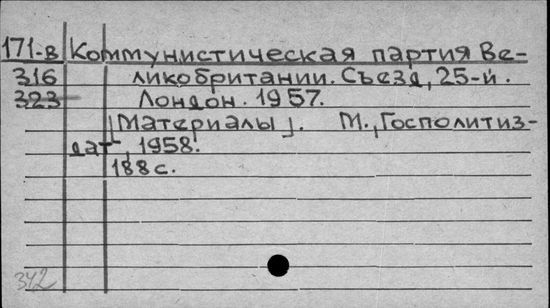 171-в Коммунистическая партия Ве-
316 ликобритании. Съезд, 25-й.
323 Лондон. 1957.
[Материалы]. М., Госполитиз-
дат, 1958.
188 с.
342